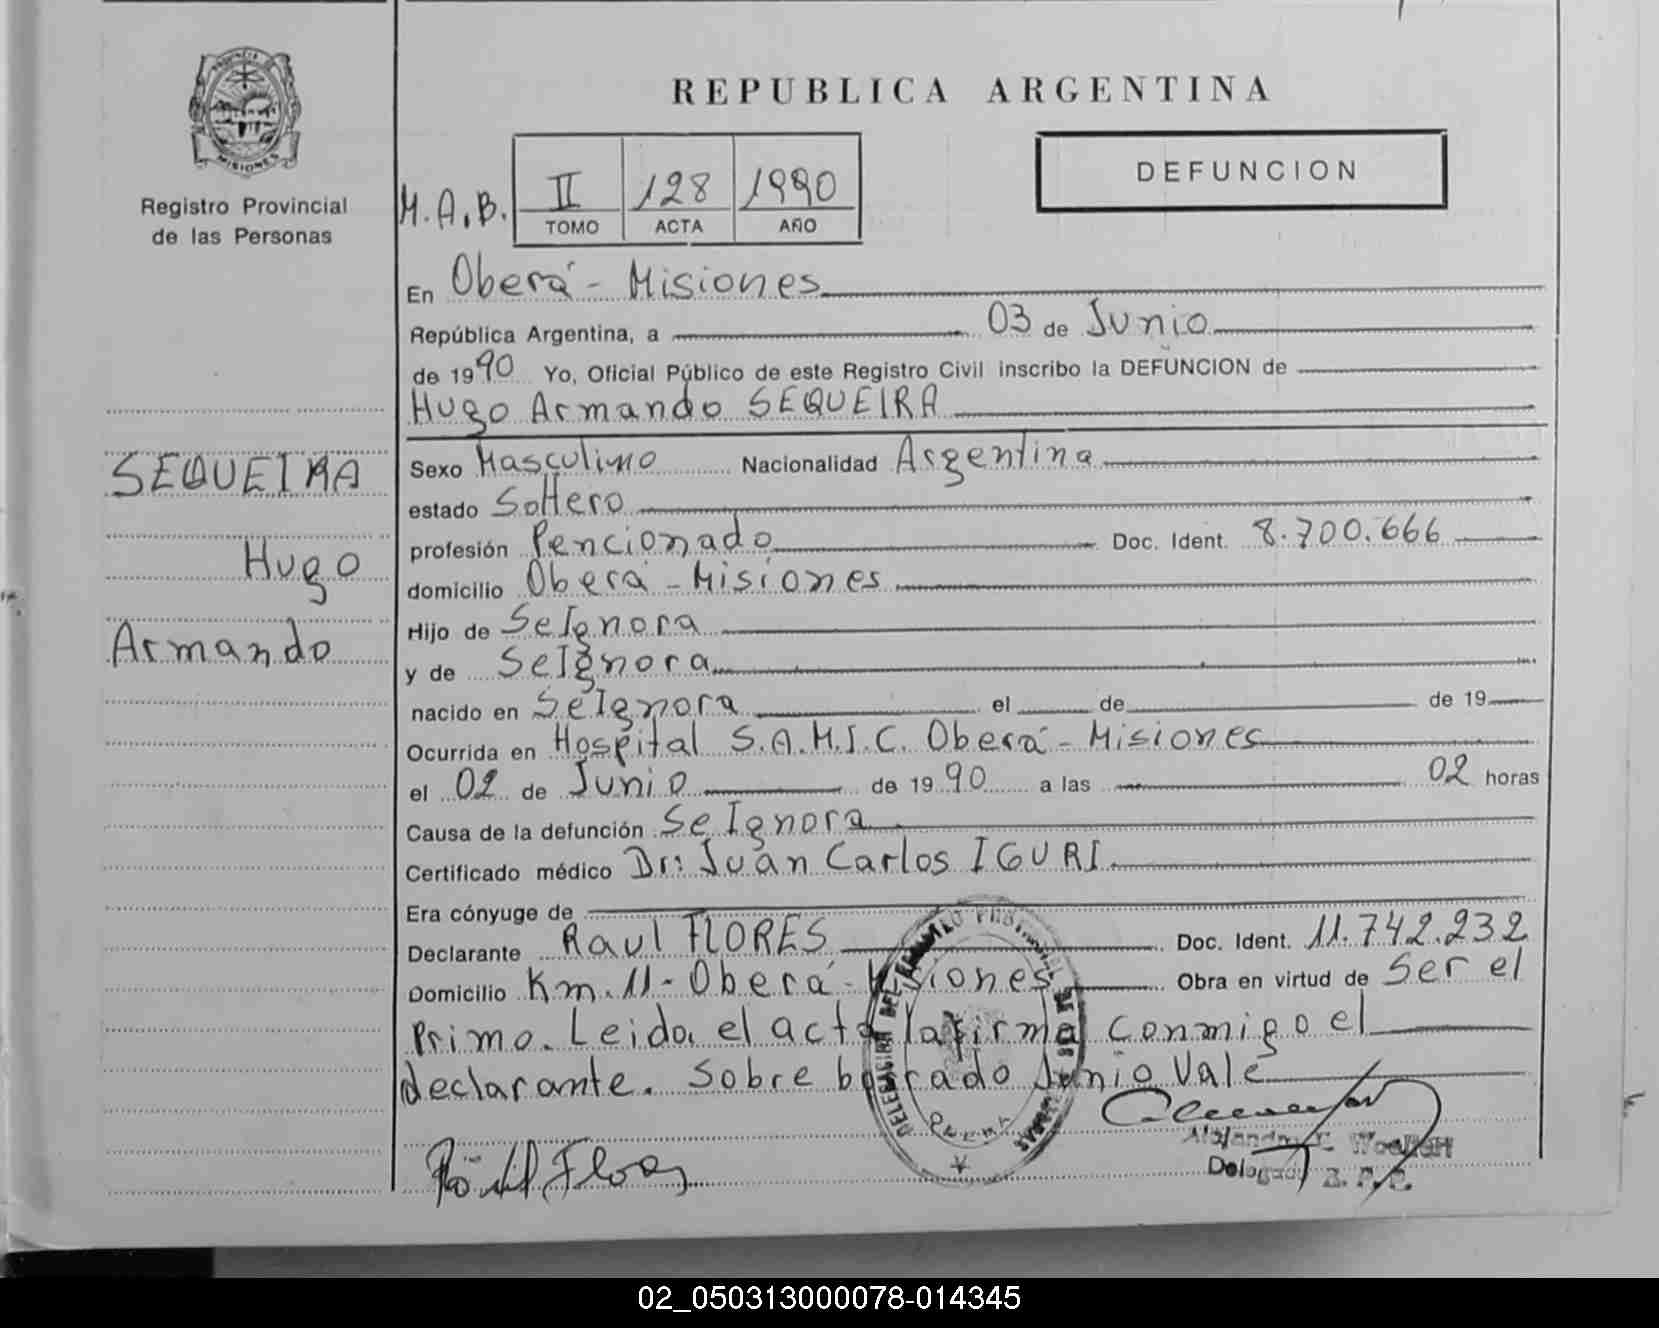 REPUBLICA ARGENTINA
PROVINCIA DE
MISIONES
Registro Provincial
de las Personas
M.A.B.
II 128 1990
TOMO ACTA AÑO
DEFUNCION
En Oberá - Misiones
República Argentina, a 03 de Junio
de 1990 Yo, Oficial Público de este Registro Civil inscribo la DEFUNCION de
Hugo Armando SEQUEIRA
SEQUEIRA
Hugo
Armando
Sexo Masculino Nacionalidad Argentina
estado Soltero
profesión Pencionado Doc. Ident. 8.700.666
domicilio Oberá - Misiones
Hijo de Se Ignora
y de Se Ignora
nacido en Se Ignora el de de 19
Ocurrida en Hospital S.A.M.I.C. Oberá - Misiones
el 02 de Junio de 1990 a las 02 horas
Causa de la defunción Se Ignora
Certificado médico Dr: Juan Carlos IGURI
Era cónyuge de
Declarante Raul FLORES Doc. Ident. 11.742.232
Domicilio Km. 11 - Oberá - Misiones Obra en virtud de Ser el
Primo. Leida el acta la firma conmigo el
declarante. Sobre borrado Junio Vale
DELEGACION DEL
OBERA
Raul Flores
Delegado R. P. P.
02_050313000078-014345